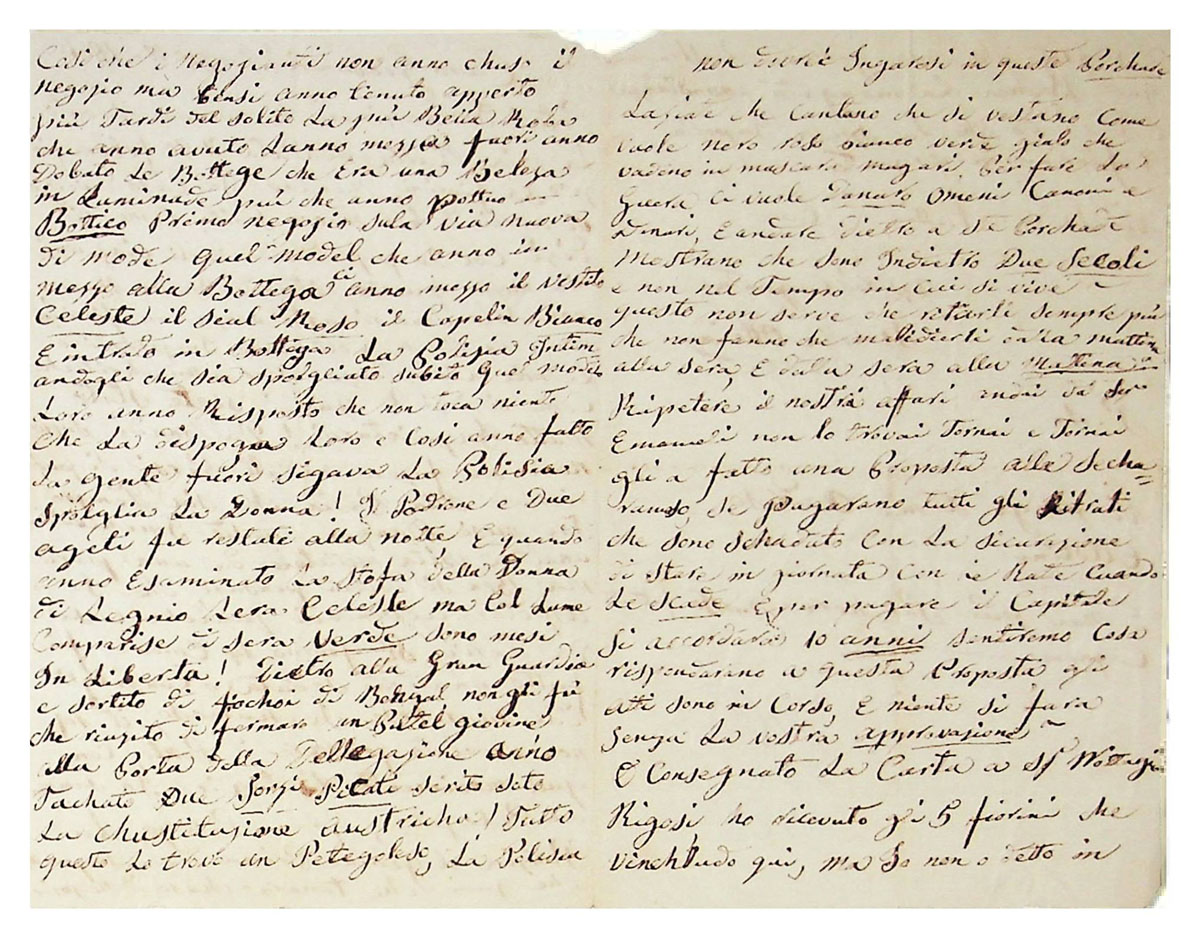 Cosi che i negozianti non anno chuso il
negozio ma bensi anno tenuto apperto
più Tardi del solito La più Bella Roba
che anno avuto Lanno messa fuori anno
Dobato Le Bottege che Era una Beleza
in Luminade più che anno pottuo
Bottico Primo negozio sula via nuova
Di mode quel model che anno in
mezzo alla Bottega ci anno messo il vestito
Celeste il Sial Roso il Capelin Bianco
E intrado in Bottega La Polizia Intim
andogli che sia sporgliato subito quel model
Loro anno Risposto che non toca niente
che La dispogia Loro e Cosi anno fatto
La gente fuori sigava La Polisia
Spolglia La Donna! Il Padrone e Due
ageti fu restati alla notte E quando
anno Esaminato La stofa della Donna
di Legnio Lera Celeste ma Col Lume
Comparise di sera Verde sono mesi
In Liberta! Dietro alla Gran Guardia
e sortito di fochoi di Bengal, non gli fu
che riusito di fermare un Putel giovine
alla Porta della Dellegazione anno
Tachato Due Sorzi Picati scrito soto
La Chustituzione austricha! Tutto
questo Lo trovo un Petegoleso, La Polisia
non dovria Ingarosi in queste Porchade
Lasiate che Cantano che si vestano Come
vuole nero roso bianco verde gialo che
vadeno in mascara magari, Per fare La
Guera Ci vuole Danaro Omeni Canoni e
Dinari, E andare Dietro a ste Porchade
Mostrano che sono Indietro Due Secoli
e non nel Tempo in Cui si vive
questo non serve che retirarli sempre più
che non fanno che malidierli da La mattina
alla sera, E dalla sera alla Mattina
Ripetere il nostri affari andai da Ser
Emanueli non lo trovai Tornai e Tornai
gli a fatto una Proposta alle
se pagarano tutti gli Ritrati
che sono Schadato Con La sicurazione
di stare in jiornata Con le Rate Cuando
Le Scade E per pagare il Capitale
Si accordaria 10 anni Sentiremo Cosa
rispondarano a questa Proposta gli
atti sono in Corso, E niente si fara
Senza La vostra approvazione
O Consegnato La Carta a
Rigosi ho ricevuto gli 5 fiorini che
qui, ma Io non o detto in